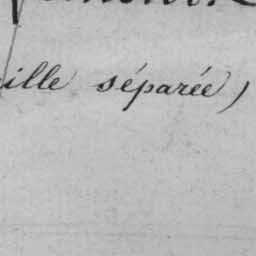 ille séparée)